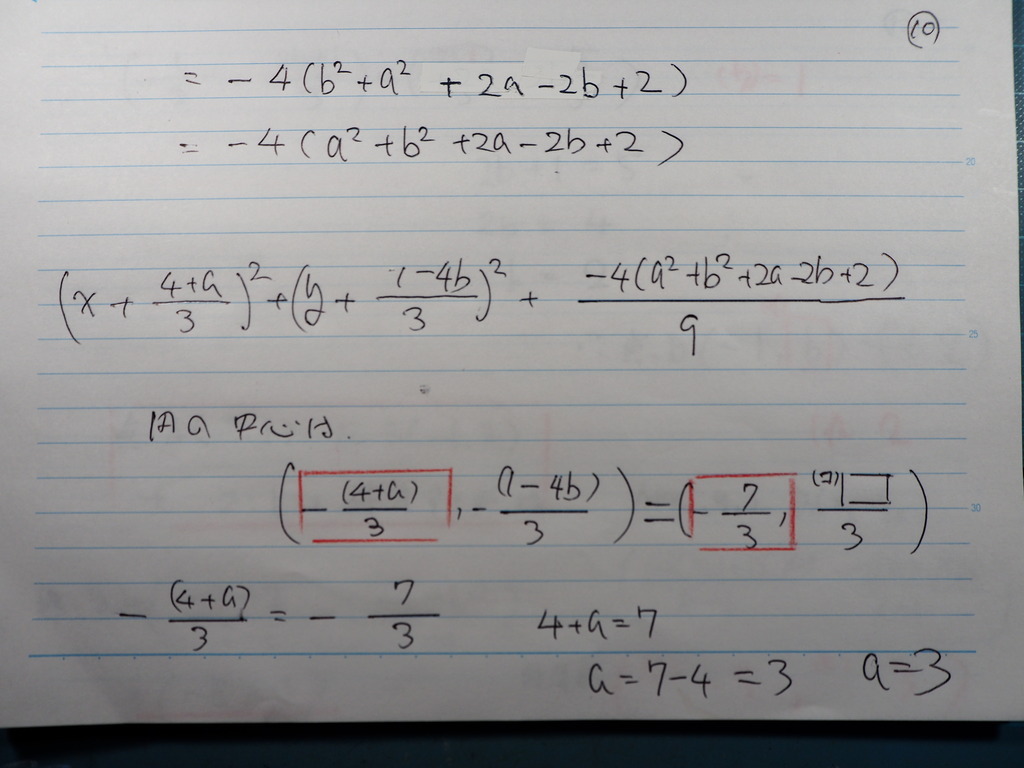 (10)
= - 4(b² + a² + 2a - 2b + 2)
= - 4(a² + b² + 2a - 2b + 2)
20
(x + (4+a)/3)² + (y + (1-4b)/3)² + (-4(a² + b² + 2a - 2b + 2))/9
25
円の中心は.
(-(4+a)/3, -(1-4b)/3) = (-7/3, (ア)□/3)
30
-(4+a)/3 = -7/3 4+a=7
a=7-4=3 a=3